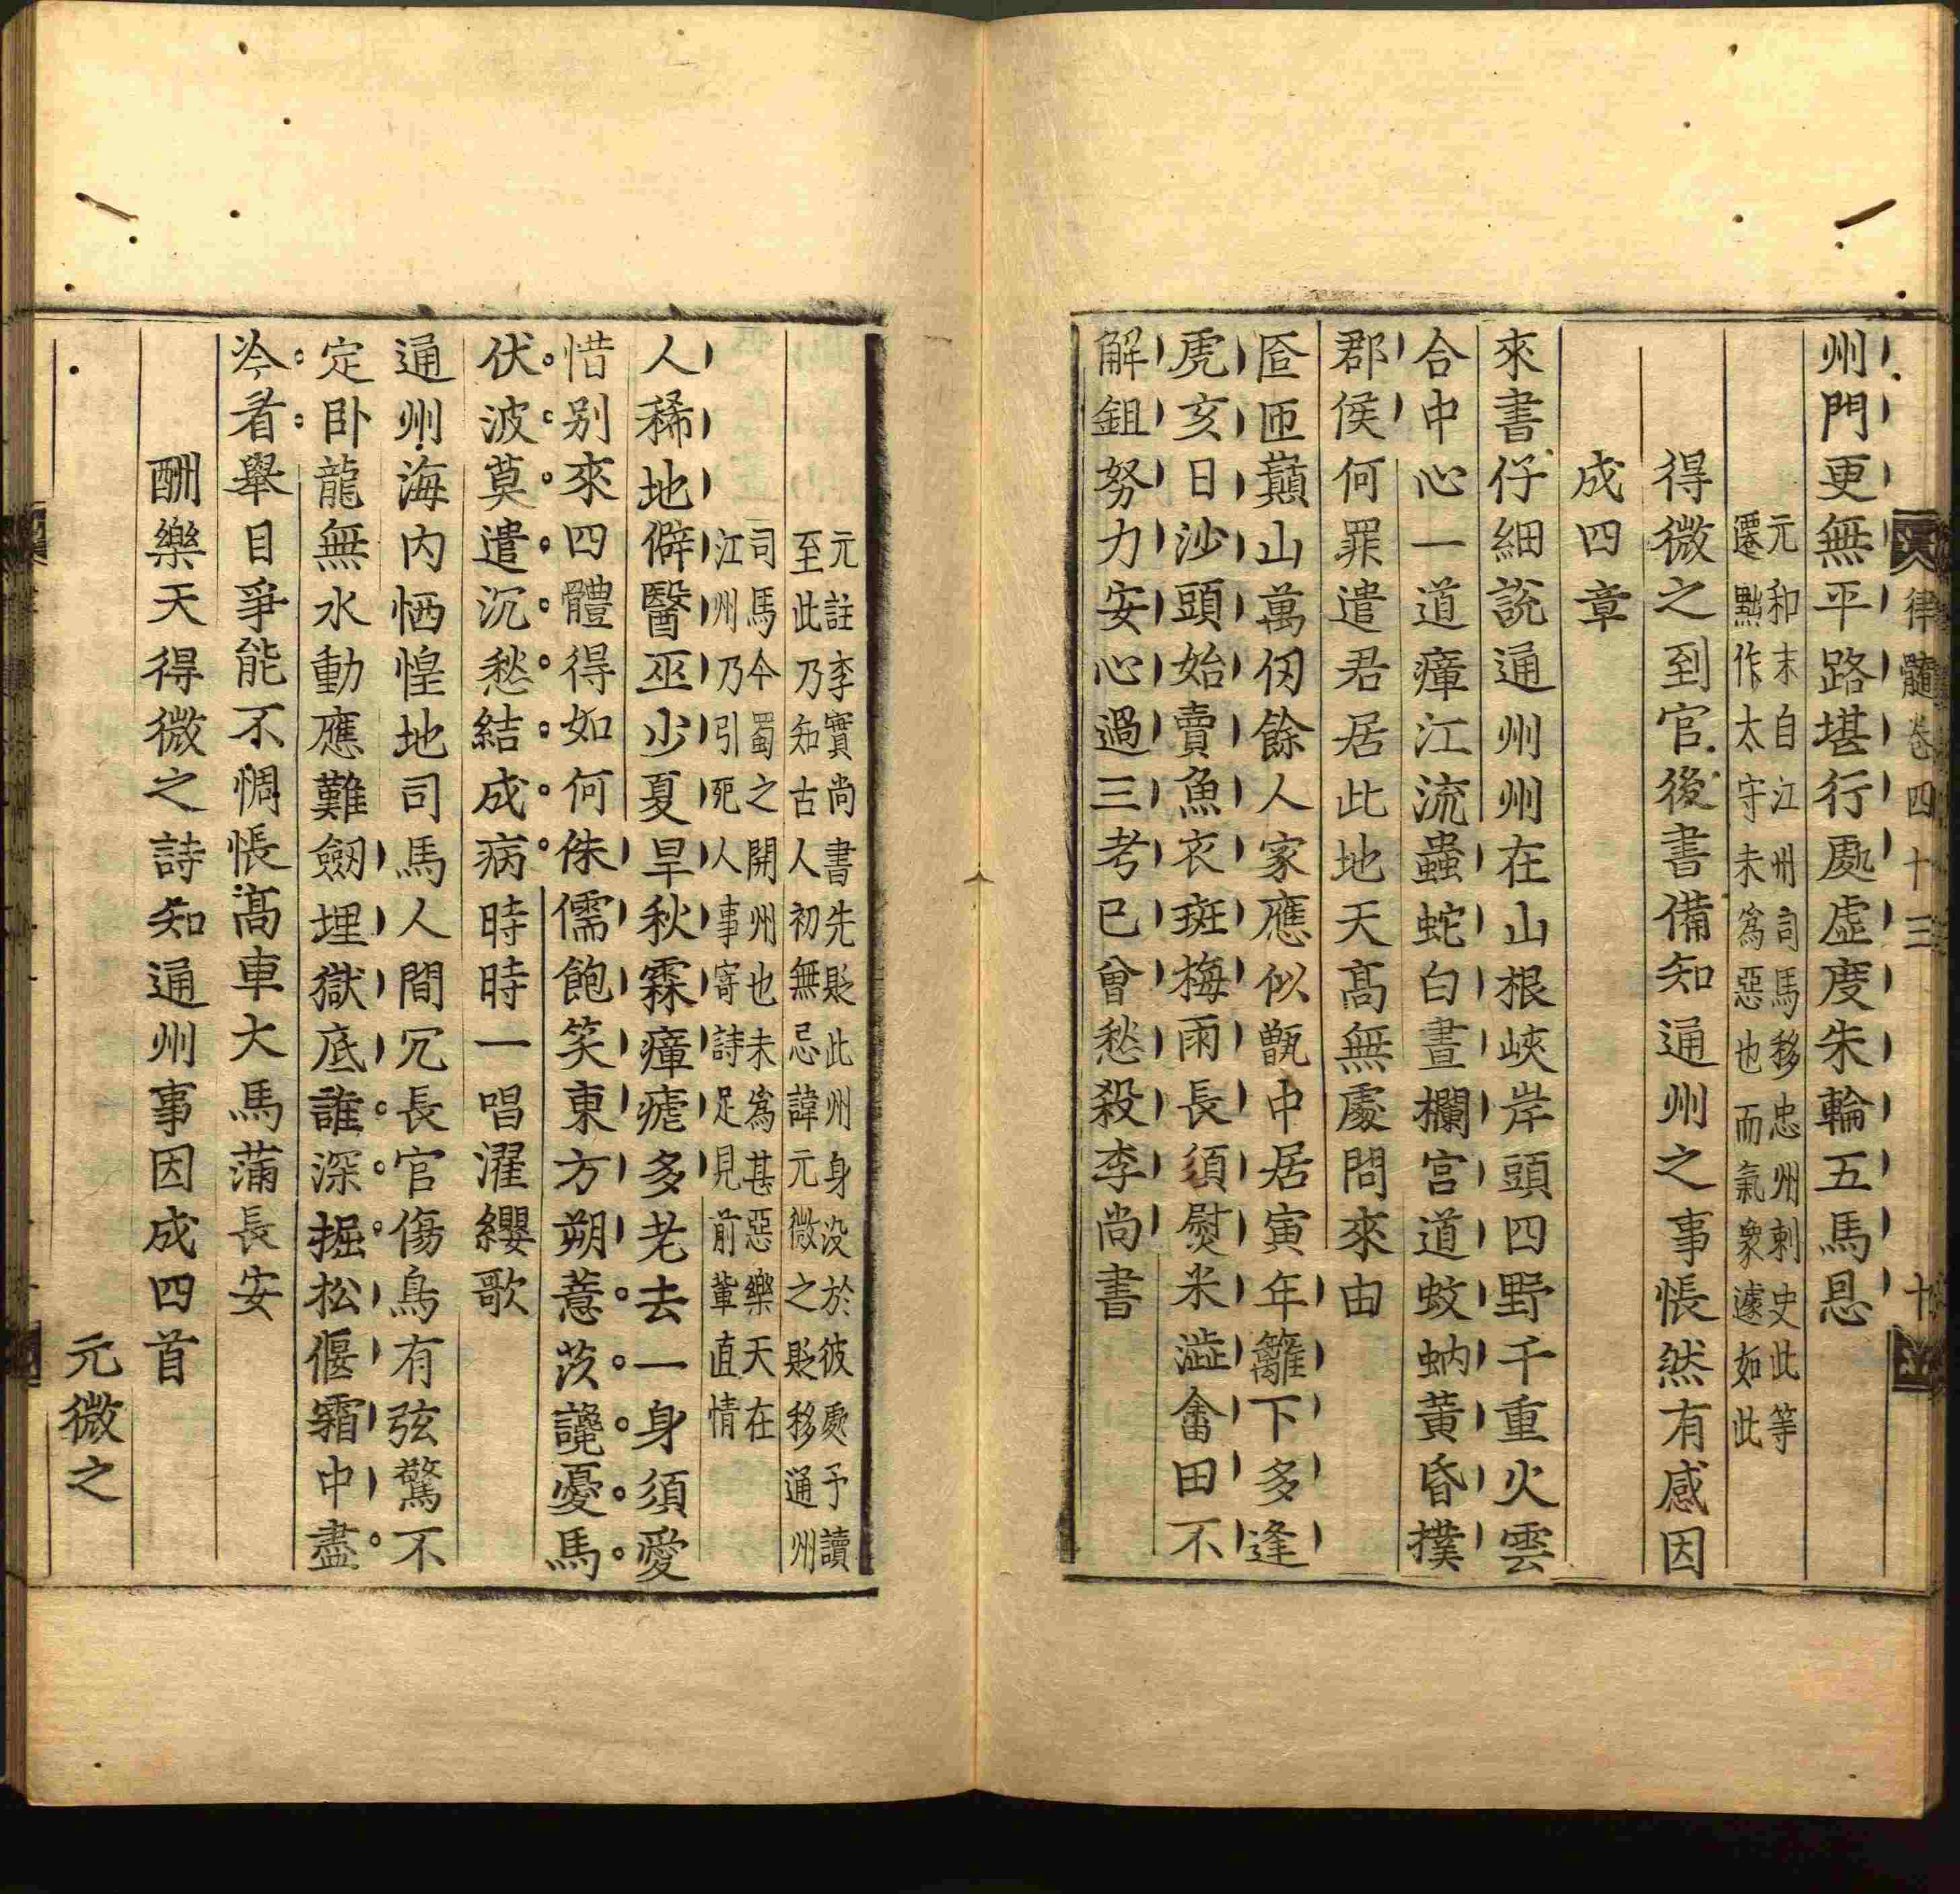 律髓卷四十三
十
州門更無平路堪行處虛度朱輪五馬恩
元和末自江州司馬移忠州刺史此等
遷黜作太守未為惡也而氣象遽如此
得微之到官後書備知通州之事悵然有感因
成四章
來書仔細說通州州在山根峽岸頭四野千重火雲
合中心一道瘴江流蟲蛇白晝攔宮道蚊蚋黃昏撲
郡侯何罪遣君居此地天高無處問來由
匼匝巔山萬仞餘人家應似甑中居寅年籬下多逢
虎亥日沙頭始賣魚衣斑梅雨長須熨米澁畬田不
解鉏努力安心過三考已曾愁殺李尚書
元註李實尚書先貶此州身没於彼處予讀
至此乃知古人初無忌諱元微之貶移通州
司馬今蜀之開州也未為甚惡樂天在
江州乃引死人事寄詩足見前輩直情
人稀地僻醫巫少夏旱秋霖瘴瘧多老去一身須愛
惜别來四體得如何侏儒飽笑東方朔薏苡讒憂馬
伏波莫遣沉愁結成病時時一唱濯纓歌
通州海内恓惶地司馬人間冗長官傷鳥有弦驚不
定卧龍無水動應難劔埋獄底誰深掘松偃霜中盡
冷看舉目爭能不惆悵高車大馬蒲長安
酬樂天得微之詩知通州事因成四首
元微之